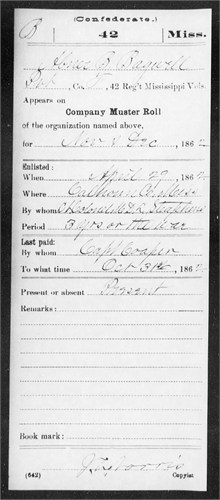 (Confederate.)
B 42 Miss.
B. Bagwell
Co. 42 Reg't Mississippi Vols.
Appears on
Company Muster Roll
of the organization named above,
for Nov & Dec, 1862
Enlisted:
When April 29, 1862
Where Calhoun Co Miss
By whom
Period 3 yrs or the War
Last paid:
By whom Capt Cooper
To what time Oct 31st, 1862
Present or absent Present
Remarks:
Book mark:
(642) Copyist